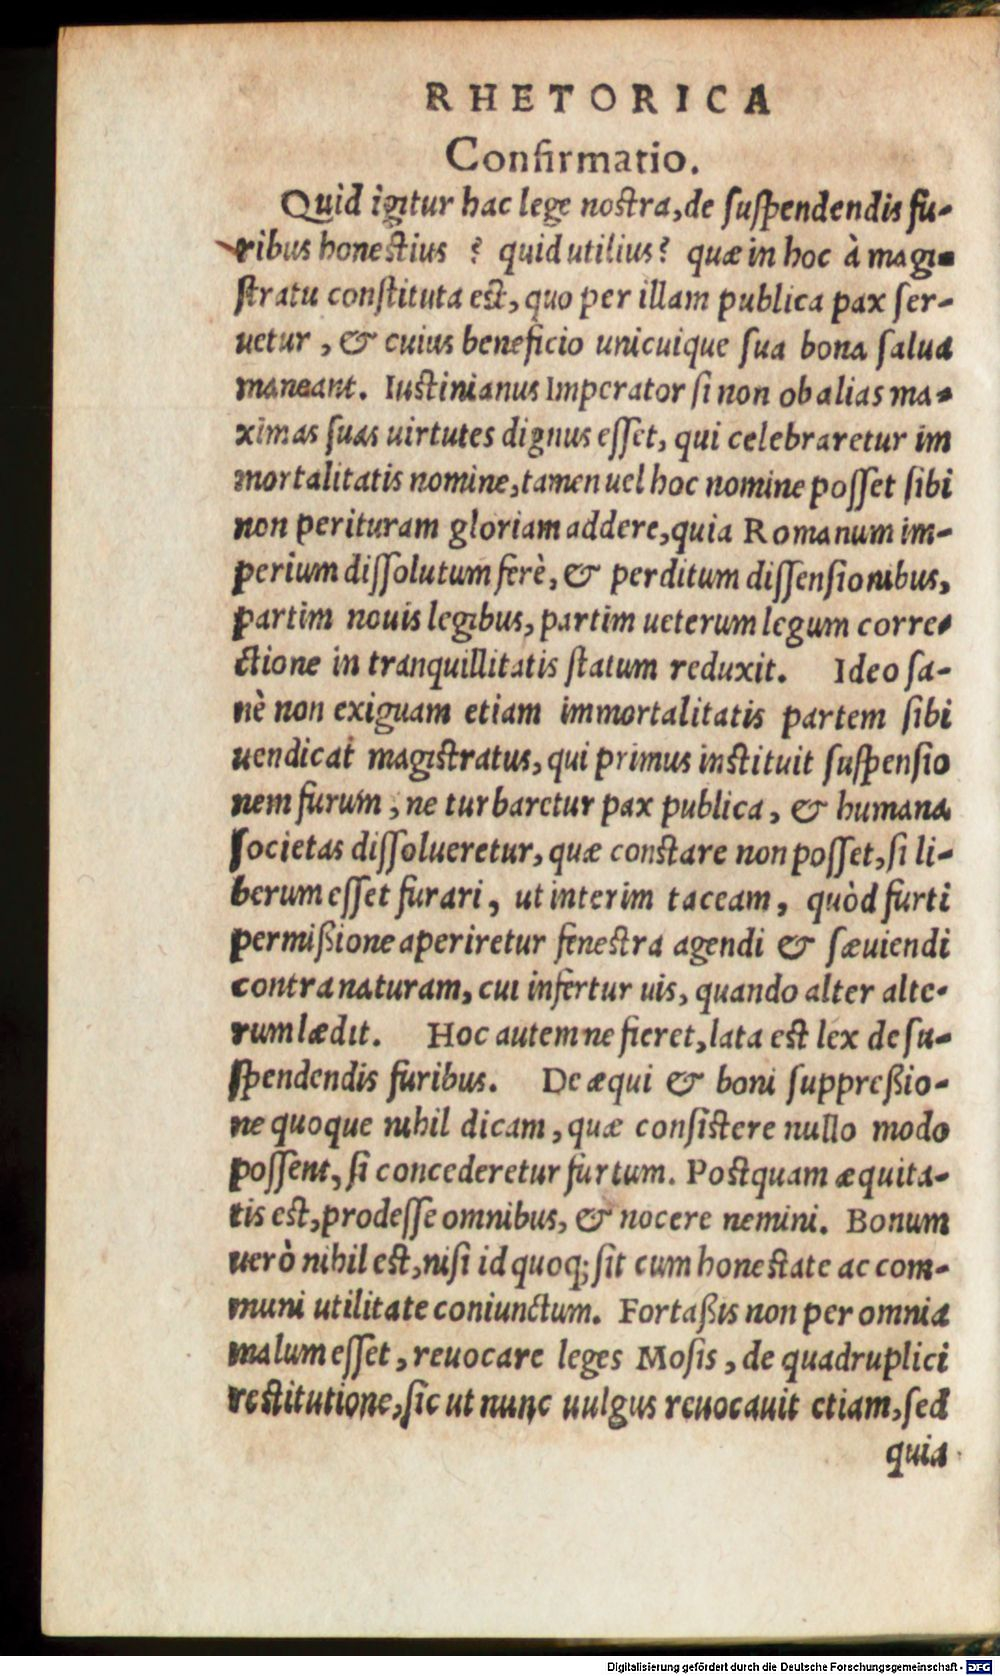 RHETORICA
Confirmatio.
Quid igitur hac lege nostra, de suspendendis fu-
ribus honestius ? quid utilius? quæ in hoc à magi-
stratu constituta est, quo per illam publica pax ser-
uetur, & cuius beneficio unicuique sua bona salua
maneant. Iustinianus Imperator si non ob alias ma-
ximas suas uirtutes dignus esset, qui celebraretur im
mortalitatis nomine, tamen uel hoc nomine posset sibi
non perituram gloriam addere, quia Romanum im-
perium dissolutum ferè, & perditum dissensionibus,
partim nouis legibus, partim ueterum legum corre-
ctione in tranquillitatis statum reduxit. Ideo sa-
nè non exiguam etiam immortalitatis partem sibi
uendicat magistratus, qui primus instituit suspensio
nem furum, ne turbaretur pax publica, & humana
societas dissolueretur, quæ constare non posset, si li-
berum esset furari, ut interim taceam, quòd furti
permißione aperiretur fenestra agendi & sæuiendi
contra naturam, cui infertur uis, quando alter alte-
rum lædit. Hoc autem ne fieret, lata est lex de su-
spendendis furibus. De æqui & boni suppreßio-
ne quoque nihil dicam, quæ consistere nullo modo
possent, si concederetur furtum. Postquam æquita-
tis est, prodesse omnibus, & nocere nemini. Bonum
uerò nihil est, nisi id quoq; sit cum honestate ac com-
muni utilitate coniunctum. Fortaßis non per omnia
malum esset, reuocare leges Mosis, de quadruplici
restitutione, sic ut nunc uulgus reuocauit etiam, sed
quia
Digitalisierung gefördert durch die Deutsche Forschungsgemeinschaft - DFG